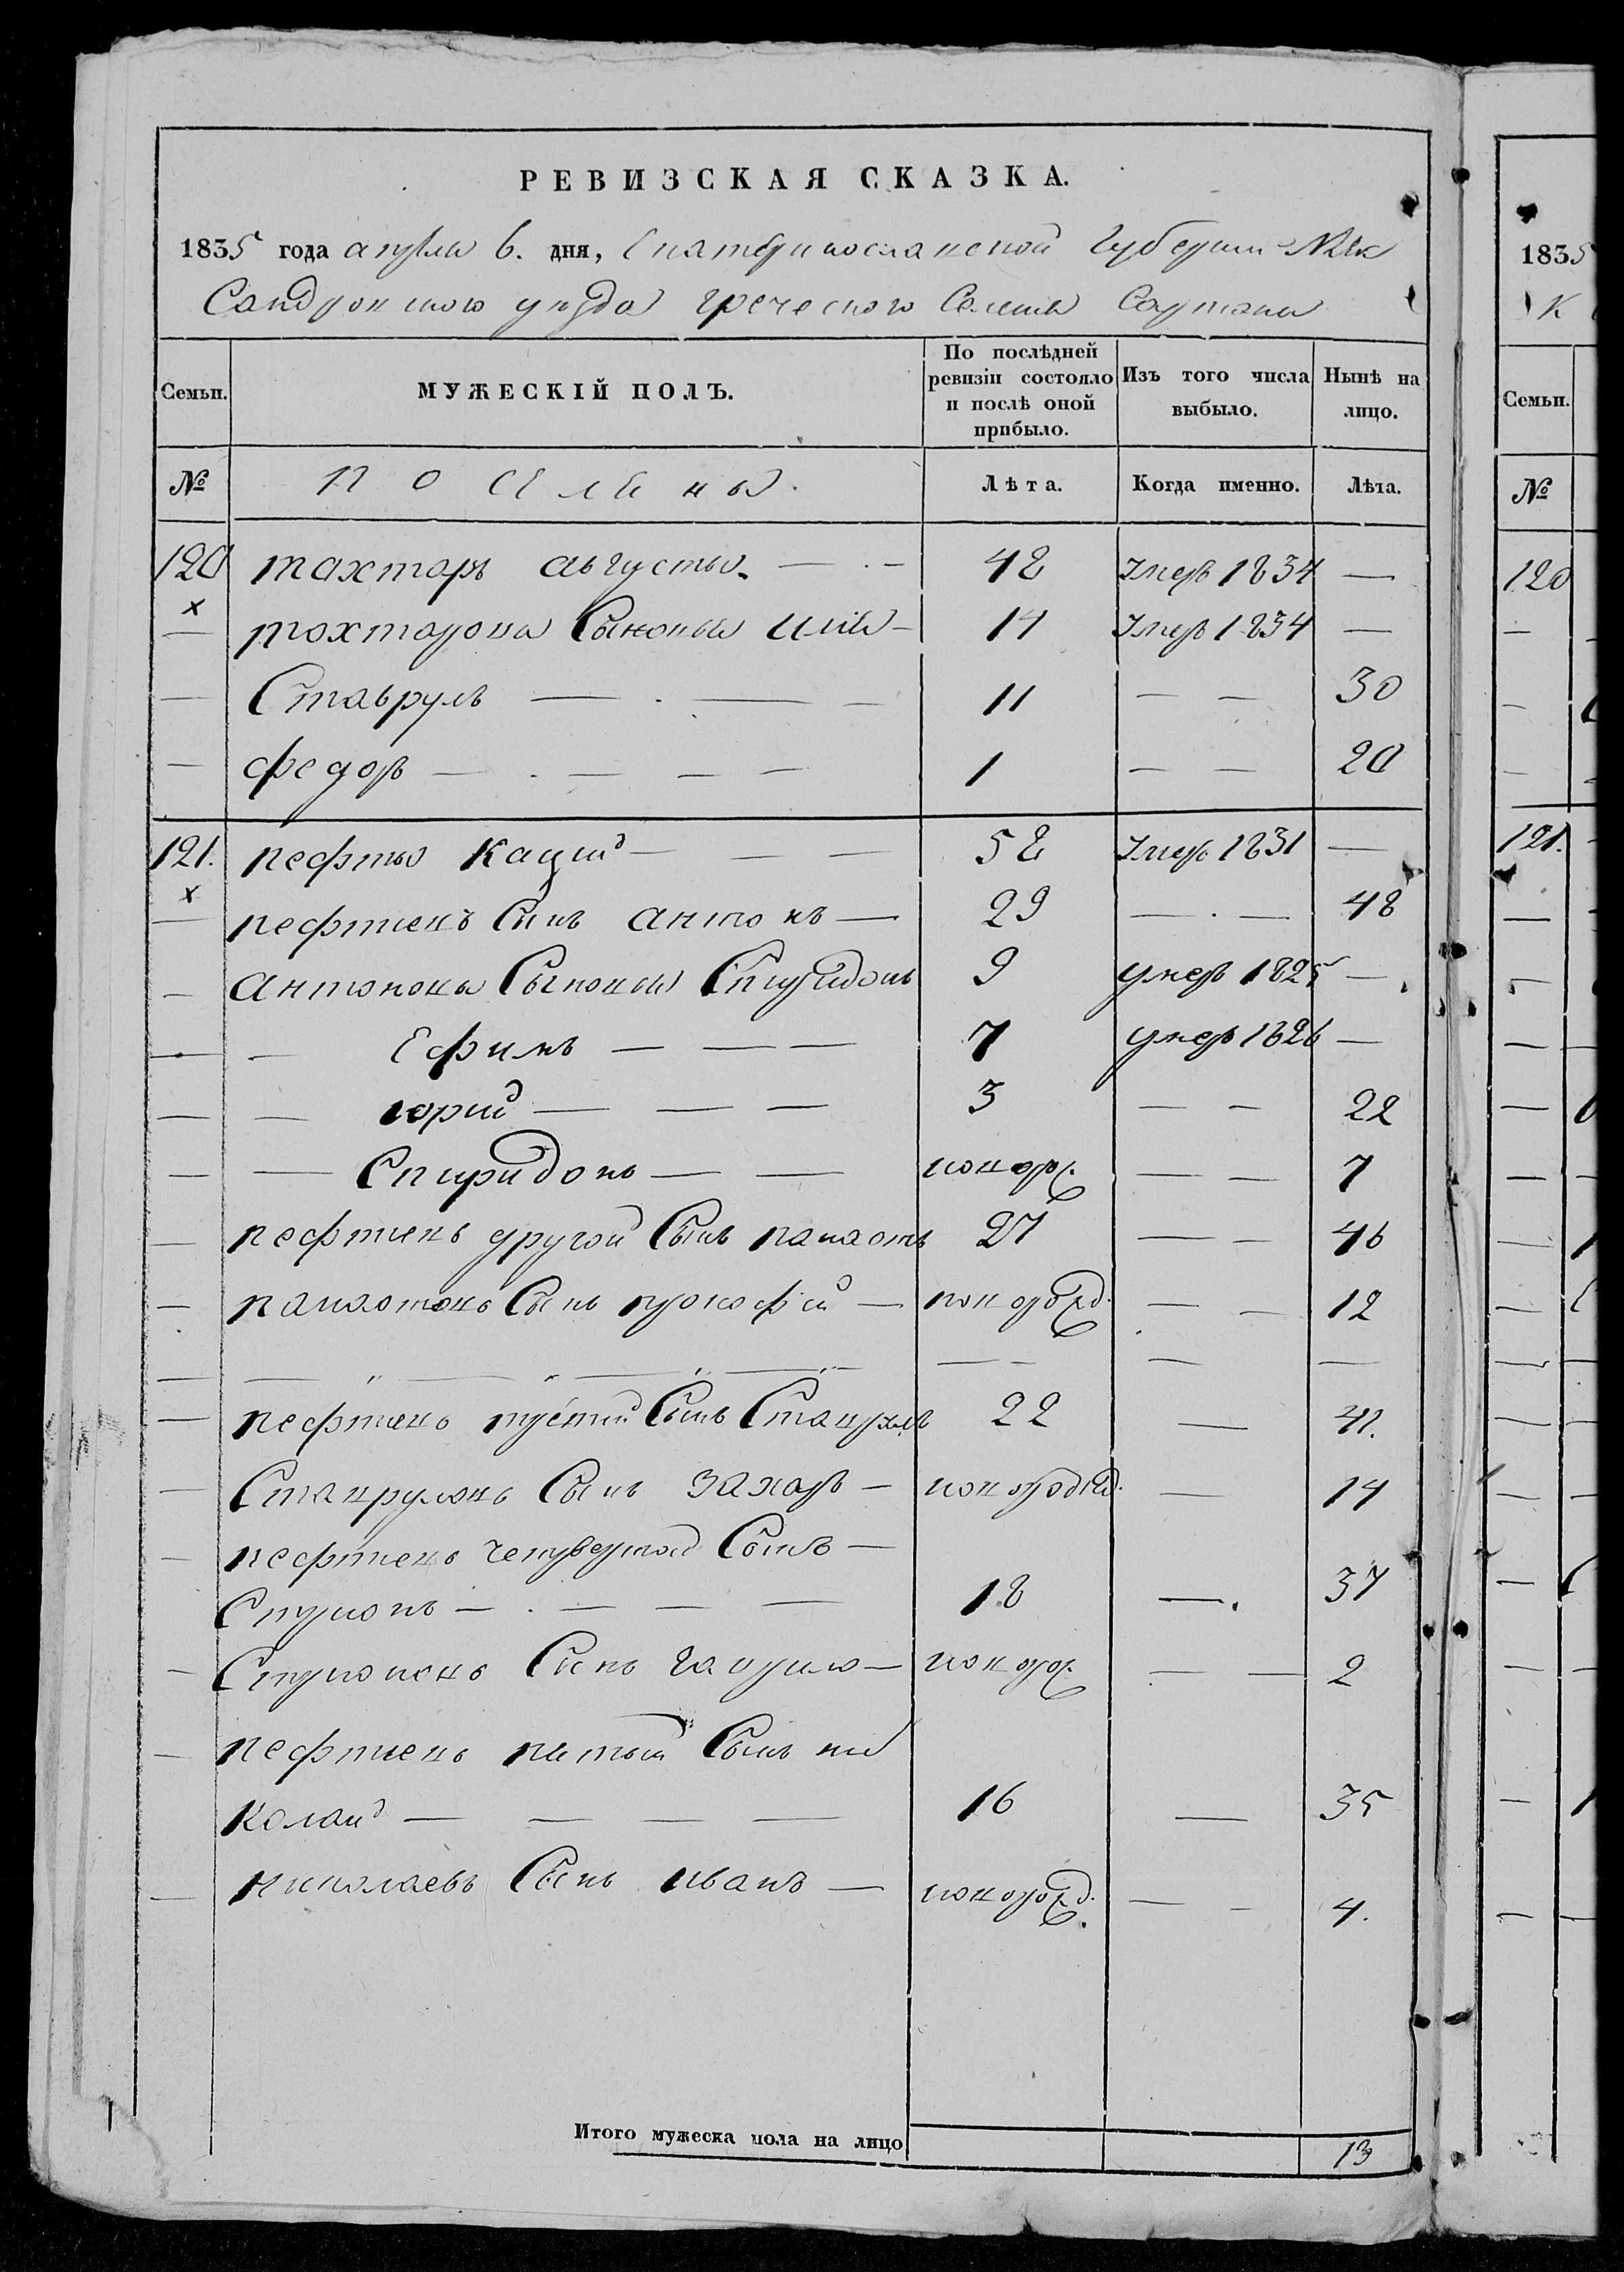 РЕВИЗСКАЯ СКАЗКА.
1835 года апреля 6. дня, Екатеринославской Губернии Алек
Сандровского уезда греческого Селения Сартаны
Семьи. МУЖЕСКІЙ ПОЛЪ. По послѣдней ревизіи состояло и послѣ оной прибыло. Изъ того числа выбыло. Нынѣ на лицо.
№ поселяны. Лѣта. Когда именно. Лѣта.
120 тахтаръ августы — 48 умеръ 1834 —
х
— тохтарова Сыновья илия — 14 умеръ 1834 —
— Ставрулъ — 11 — — 30
— федоръ — 1 — — 20
121. пефты Кацій — 52 умеръ 1831 —
х
— пефтиевъ Сынъ антонъ — 29 — — 48
— антоновы Сыновья Спиридонъ 9 умеръ 1825 —
— — Ефимъ — 7 умеръ 1826 —
— — юрий — 3 — — 22
— — Спиридонъ — новорож. — — 7
— пефтиевъ другой Сынъ панаотъ 27 — — 46
— панаотовъ Сынъ прокофій — новорожд. — — 12
— пефтиевъ третий Сынъ Ставрулъ 22 — 41.
— Ставруловъ Сынъ захаръ — новорожд. — 14
— пефтиевъ четвертой Сынъ —
Стирионъ — 18 — 37
— Стирионовъ Сынъ гаврило — новорож. — — 2
— пефтиевъ пятый Сынъ ни
колай — 16 — 35
— николаевъ Сынъ иванъ — новорожд. — — 4.
Итого мужеска пола на лицо 13
1835
К
Семьи.
№
120
121.